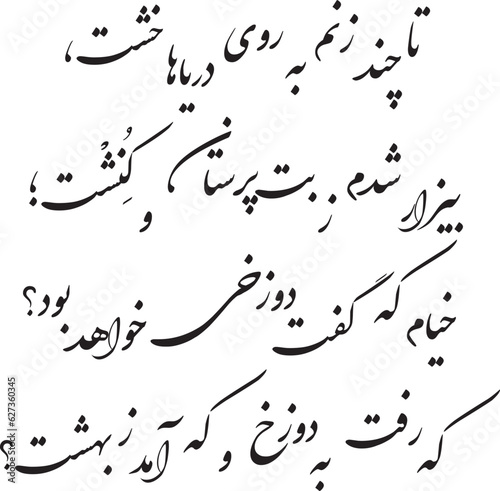 تا چند زنم به روی دریاها خشت،
بیزار شدم ز بت‌پرستان و کُنِشْت؛
خیام که گفت دوزخی خواهد بود؟
که رفت به دوزخ و که آمد ز بهشت؟
Adobe Stock | #627360345